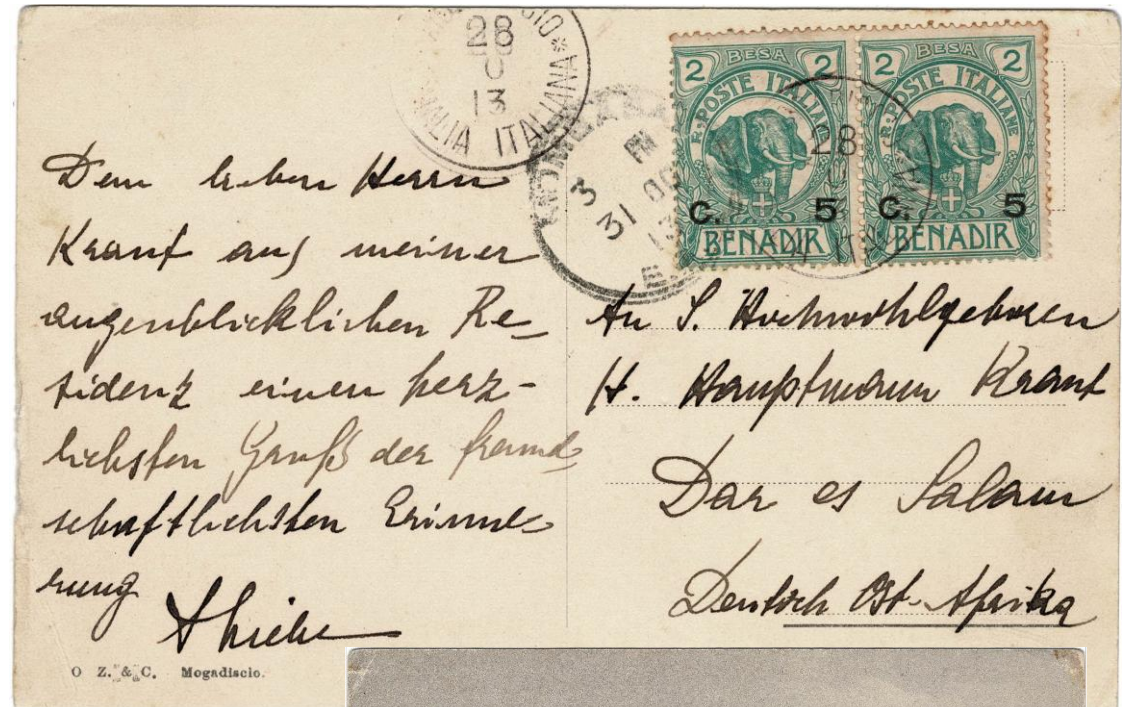 28
13
SOMALIA ITALIANA
MOMBASA
3 PM
31 OC
13
BESA
2 2
R. POSTE ITALIANE
C. 5
BENADIR
BESA
2 2
R. POSTE ITALIANE
C. 5
BENADIR
28
Dem lieben Herrn
Kraut aus meiner
augenblicklichen Re-
sidenz einen herz-
lichsten Gruß der freund-
schaftlichsten Erinne-
rung
An S. Hochwohlgeboren
H. Hauptmann Kraut
Dar es Salam
Deutsch Ost-Afrika
O Z. & C. Mogadiscio.